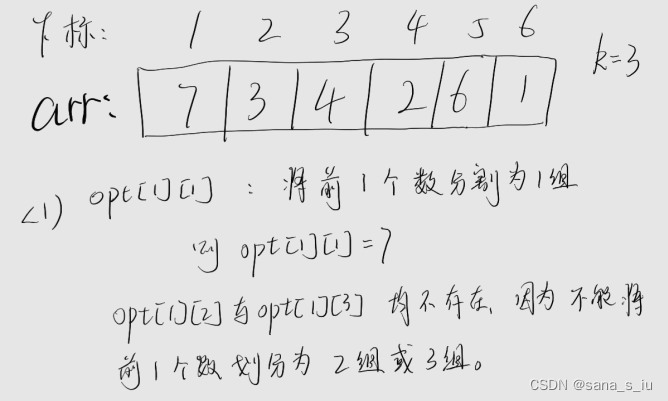 下标: 1 2 3 4 5 6
k=3
arr: 7 3 4 2 6 1
<1) opt[1][1] : 将前1个数分割为1组
则 opt[1][1]=7
opt[1][2]与opt[1][3] 均不存在, 因为 不能将
前1个数划分为 2组或3组。
CSDN @sana_s_iu